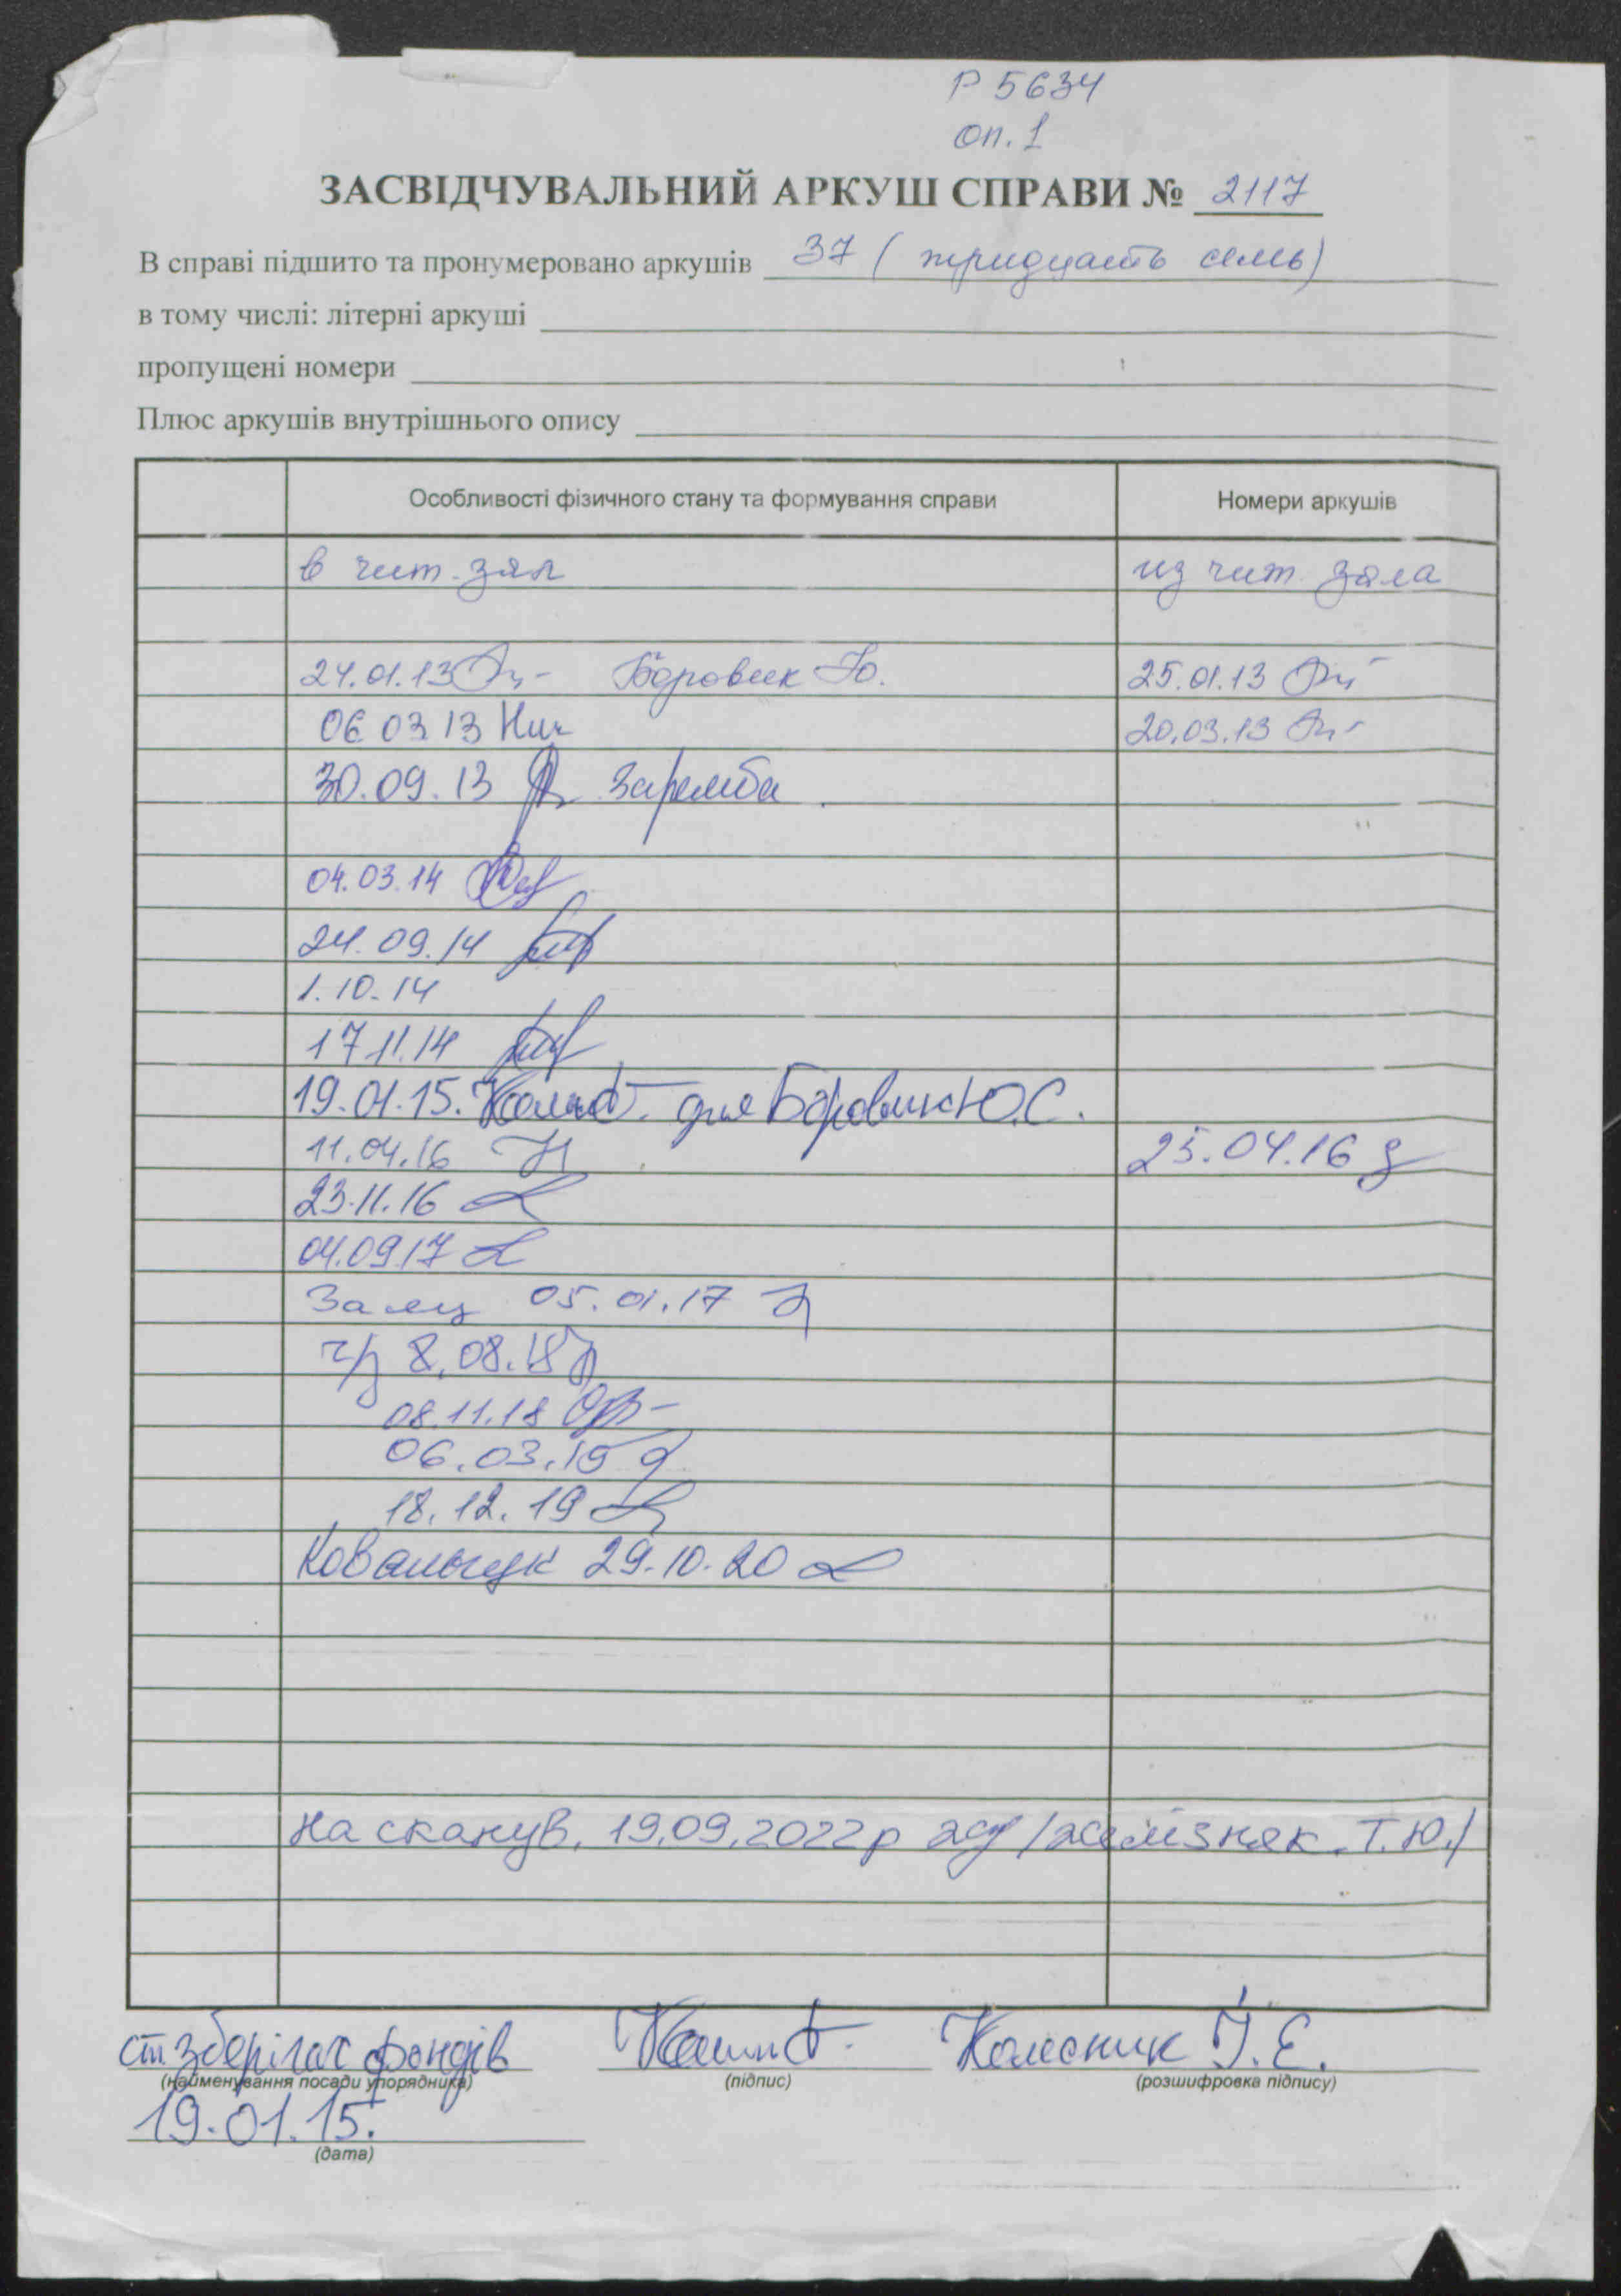 Р 5634
оп. 1
ЗАСВІДЧУВАЛЬНИЙ АРКУШ СПРАВИ № 2117
В справі підшито та пронумеровано аркушів 37 (тридцать семь)
в тому числі: літерні аркуші
пропущені номери
Плюс аркушів внутрішнього опису
Особливості фізичного стану та формування справи Номери аркушів
в чит. зал из чит. зала
24.01.13 Боровик Ю. 25.01.13
06.03.13 20.03.13
30.09.13 Заремба
04.03.14
24.09.14
1.10.14
17.11.14
19.01.15. для Боровик Ю.С.
11.04.16 25.04.16
23.11.16
04.09.17
05.01.17
ч/з 8.08.18
08.11.18
06.03.19
18.12.19
Ковальчук 29.10.20
На сканув. 19.09.2022р /Желізняк Т.Ю./
ст. зберігач фондів Колесник І.Є.
(найменування посади упорядника) (підпис) (розшифровка підпису)
19.01.15.
(дата)